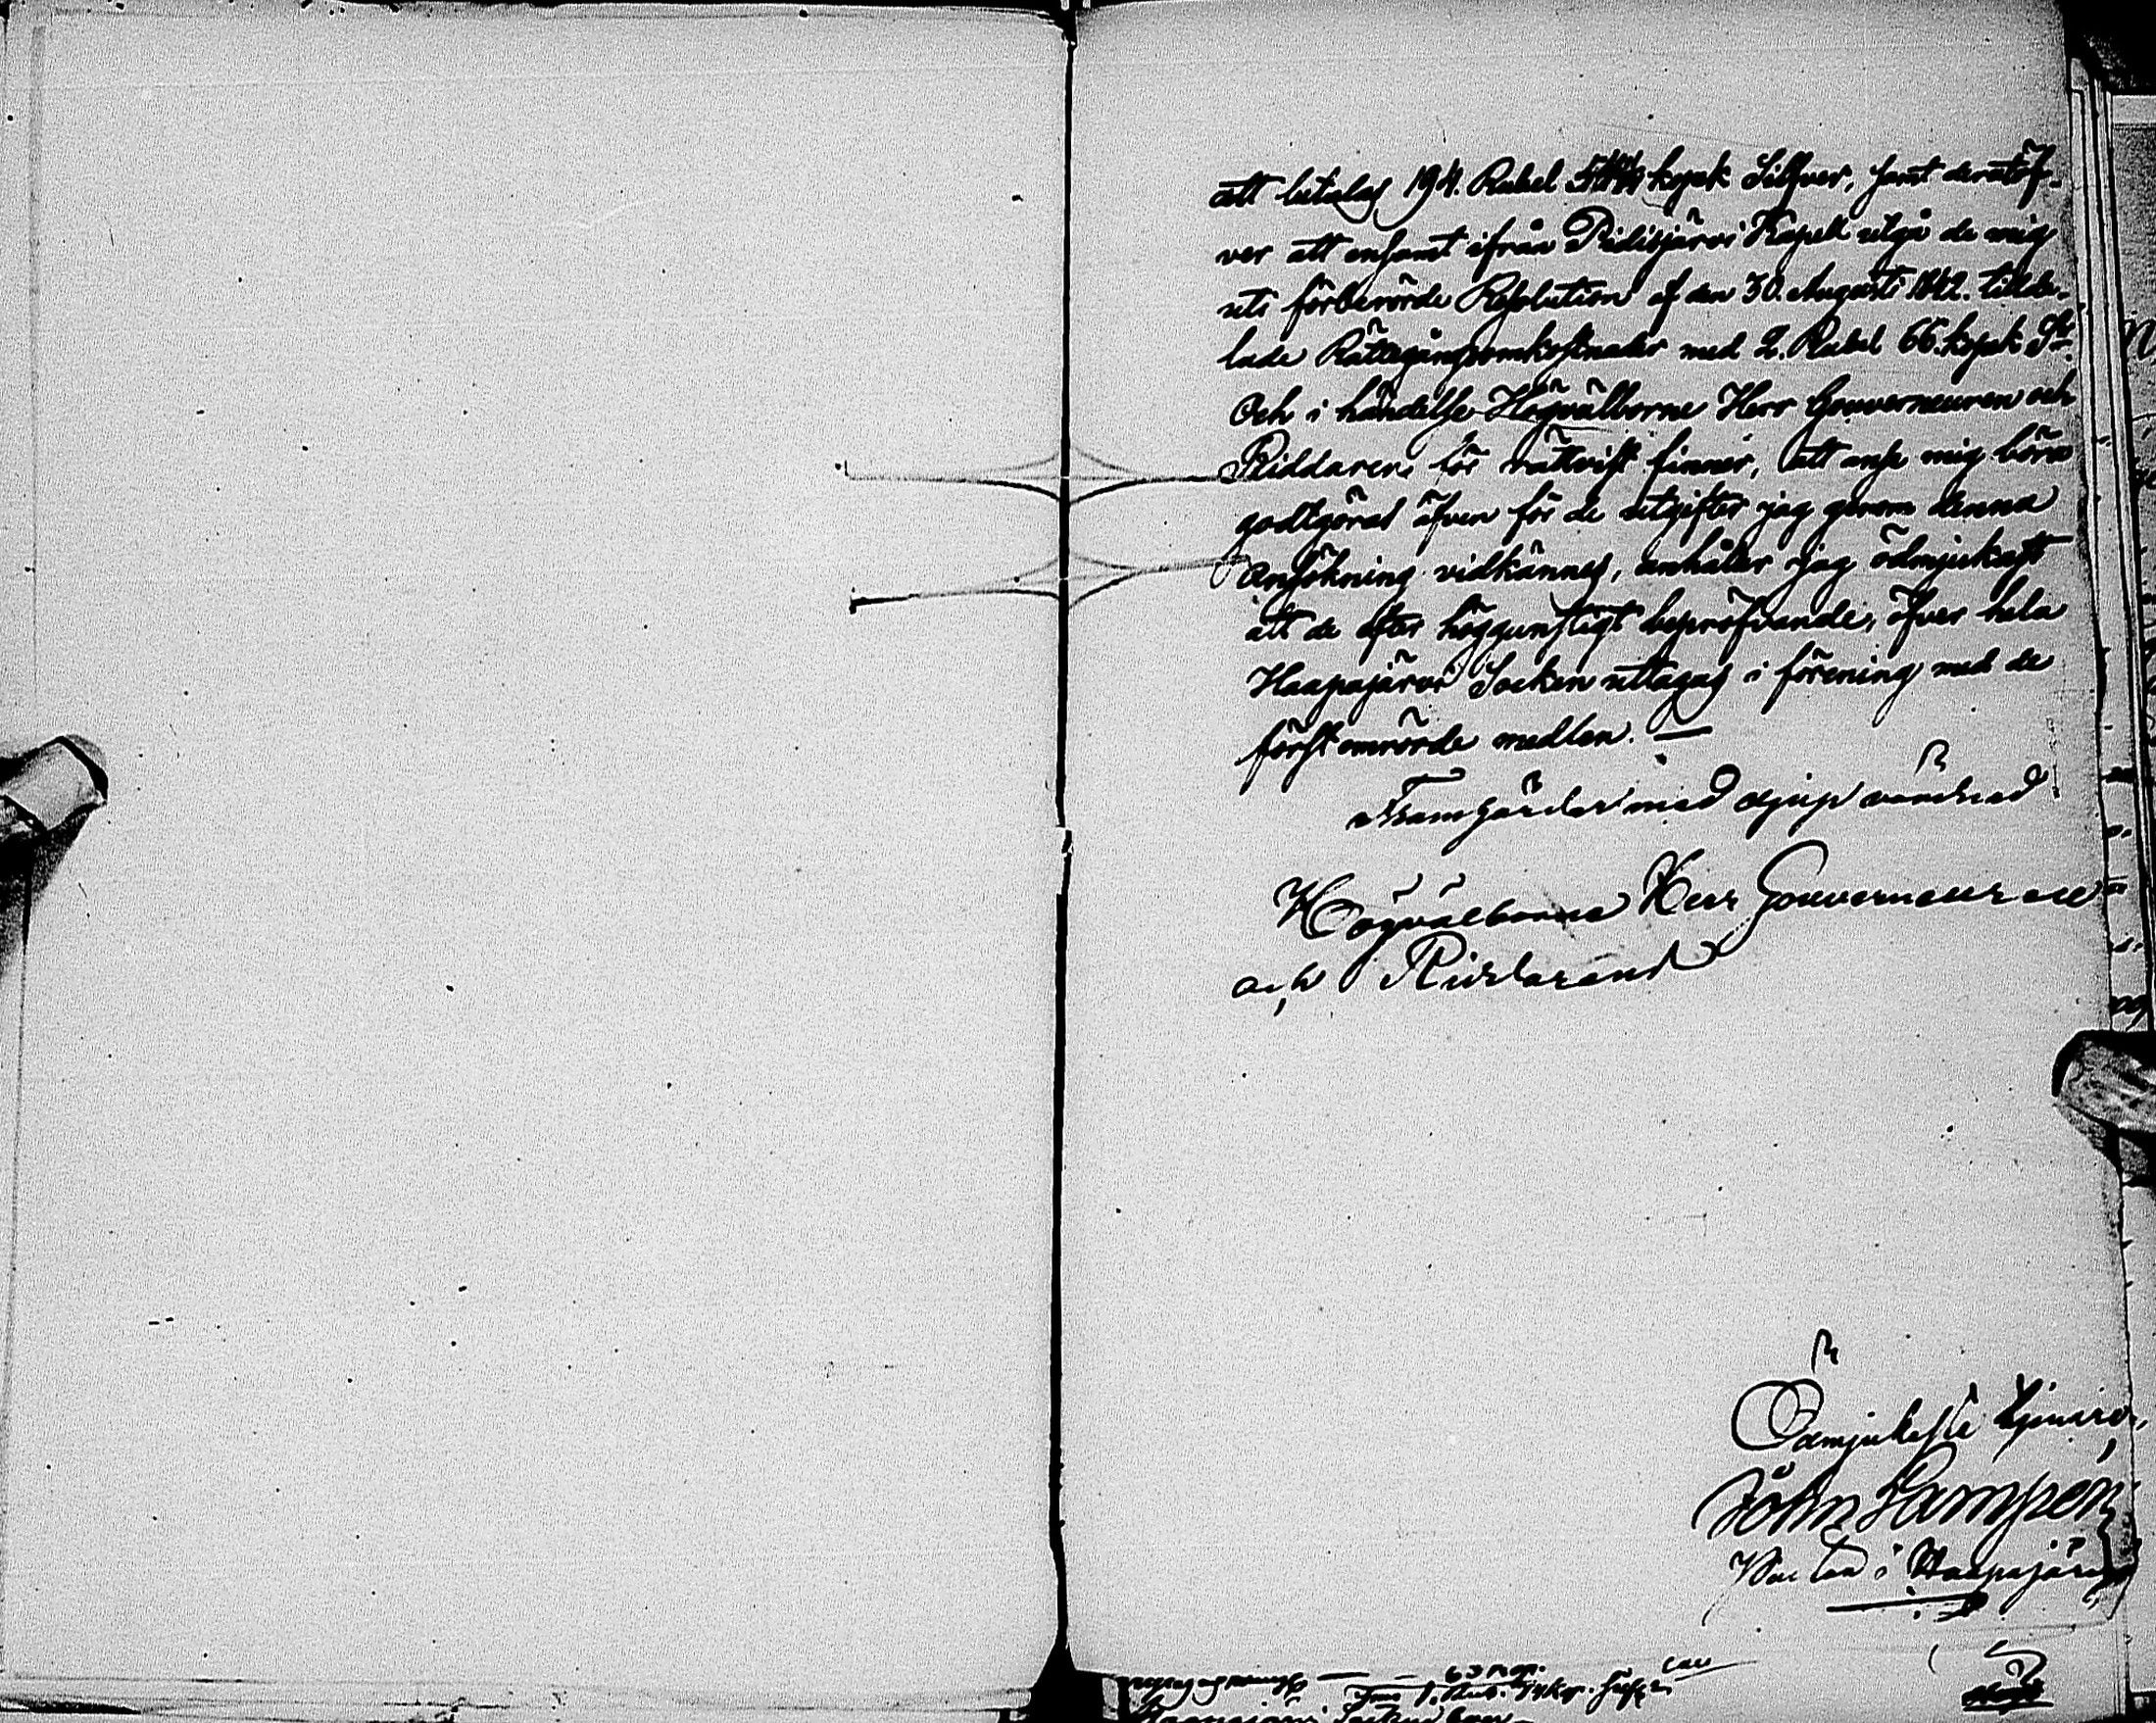 att betalas 194. Rubel kopek Silfver, samt derutöf-
ver att ensamt ifrån Pidisjärvi Kapell utgå de mig
uti förberörde Resolution af den 30. Augusti 1842. tillde-
lade Rättegångsomkostnader med 2. Rubel 66. kopek Sr.
Och i händelse Högvälborne Herr Gouverneuren och
Riddaren för rättvist finner, att anse mig böra
godtgöras äfven för de utgifter jag genom denna
ansökning vidkännes, anhåller jag ödmjukast
att de efter höggunstigt bepröfvande, öfver hela
Haapajärvi Socken uttagas i förening med de
förstomrörde medlen. —
Framhärdar med djup vördnad
Högvälborne Herr Gouverneurens
och Riddarens
Ödmjukaste tjenare,
Joh: Lampén
i Haapajärvi
63 kop.
1. Rub. kop. Silfr
Haapajärvi Socken